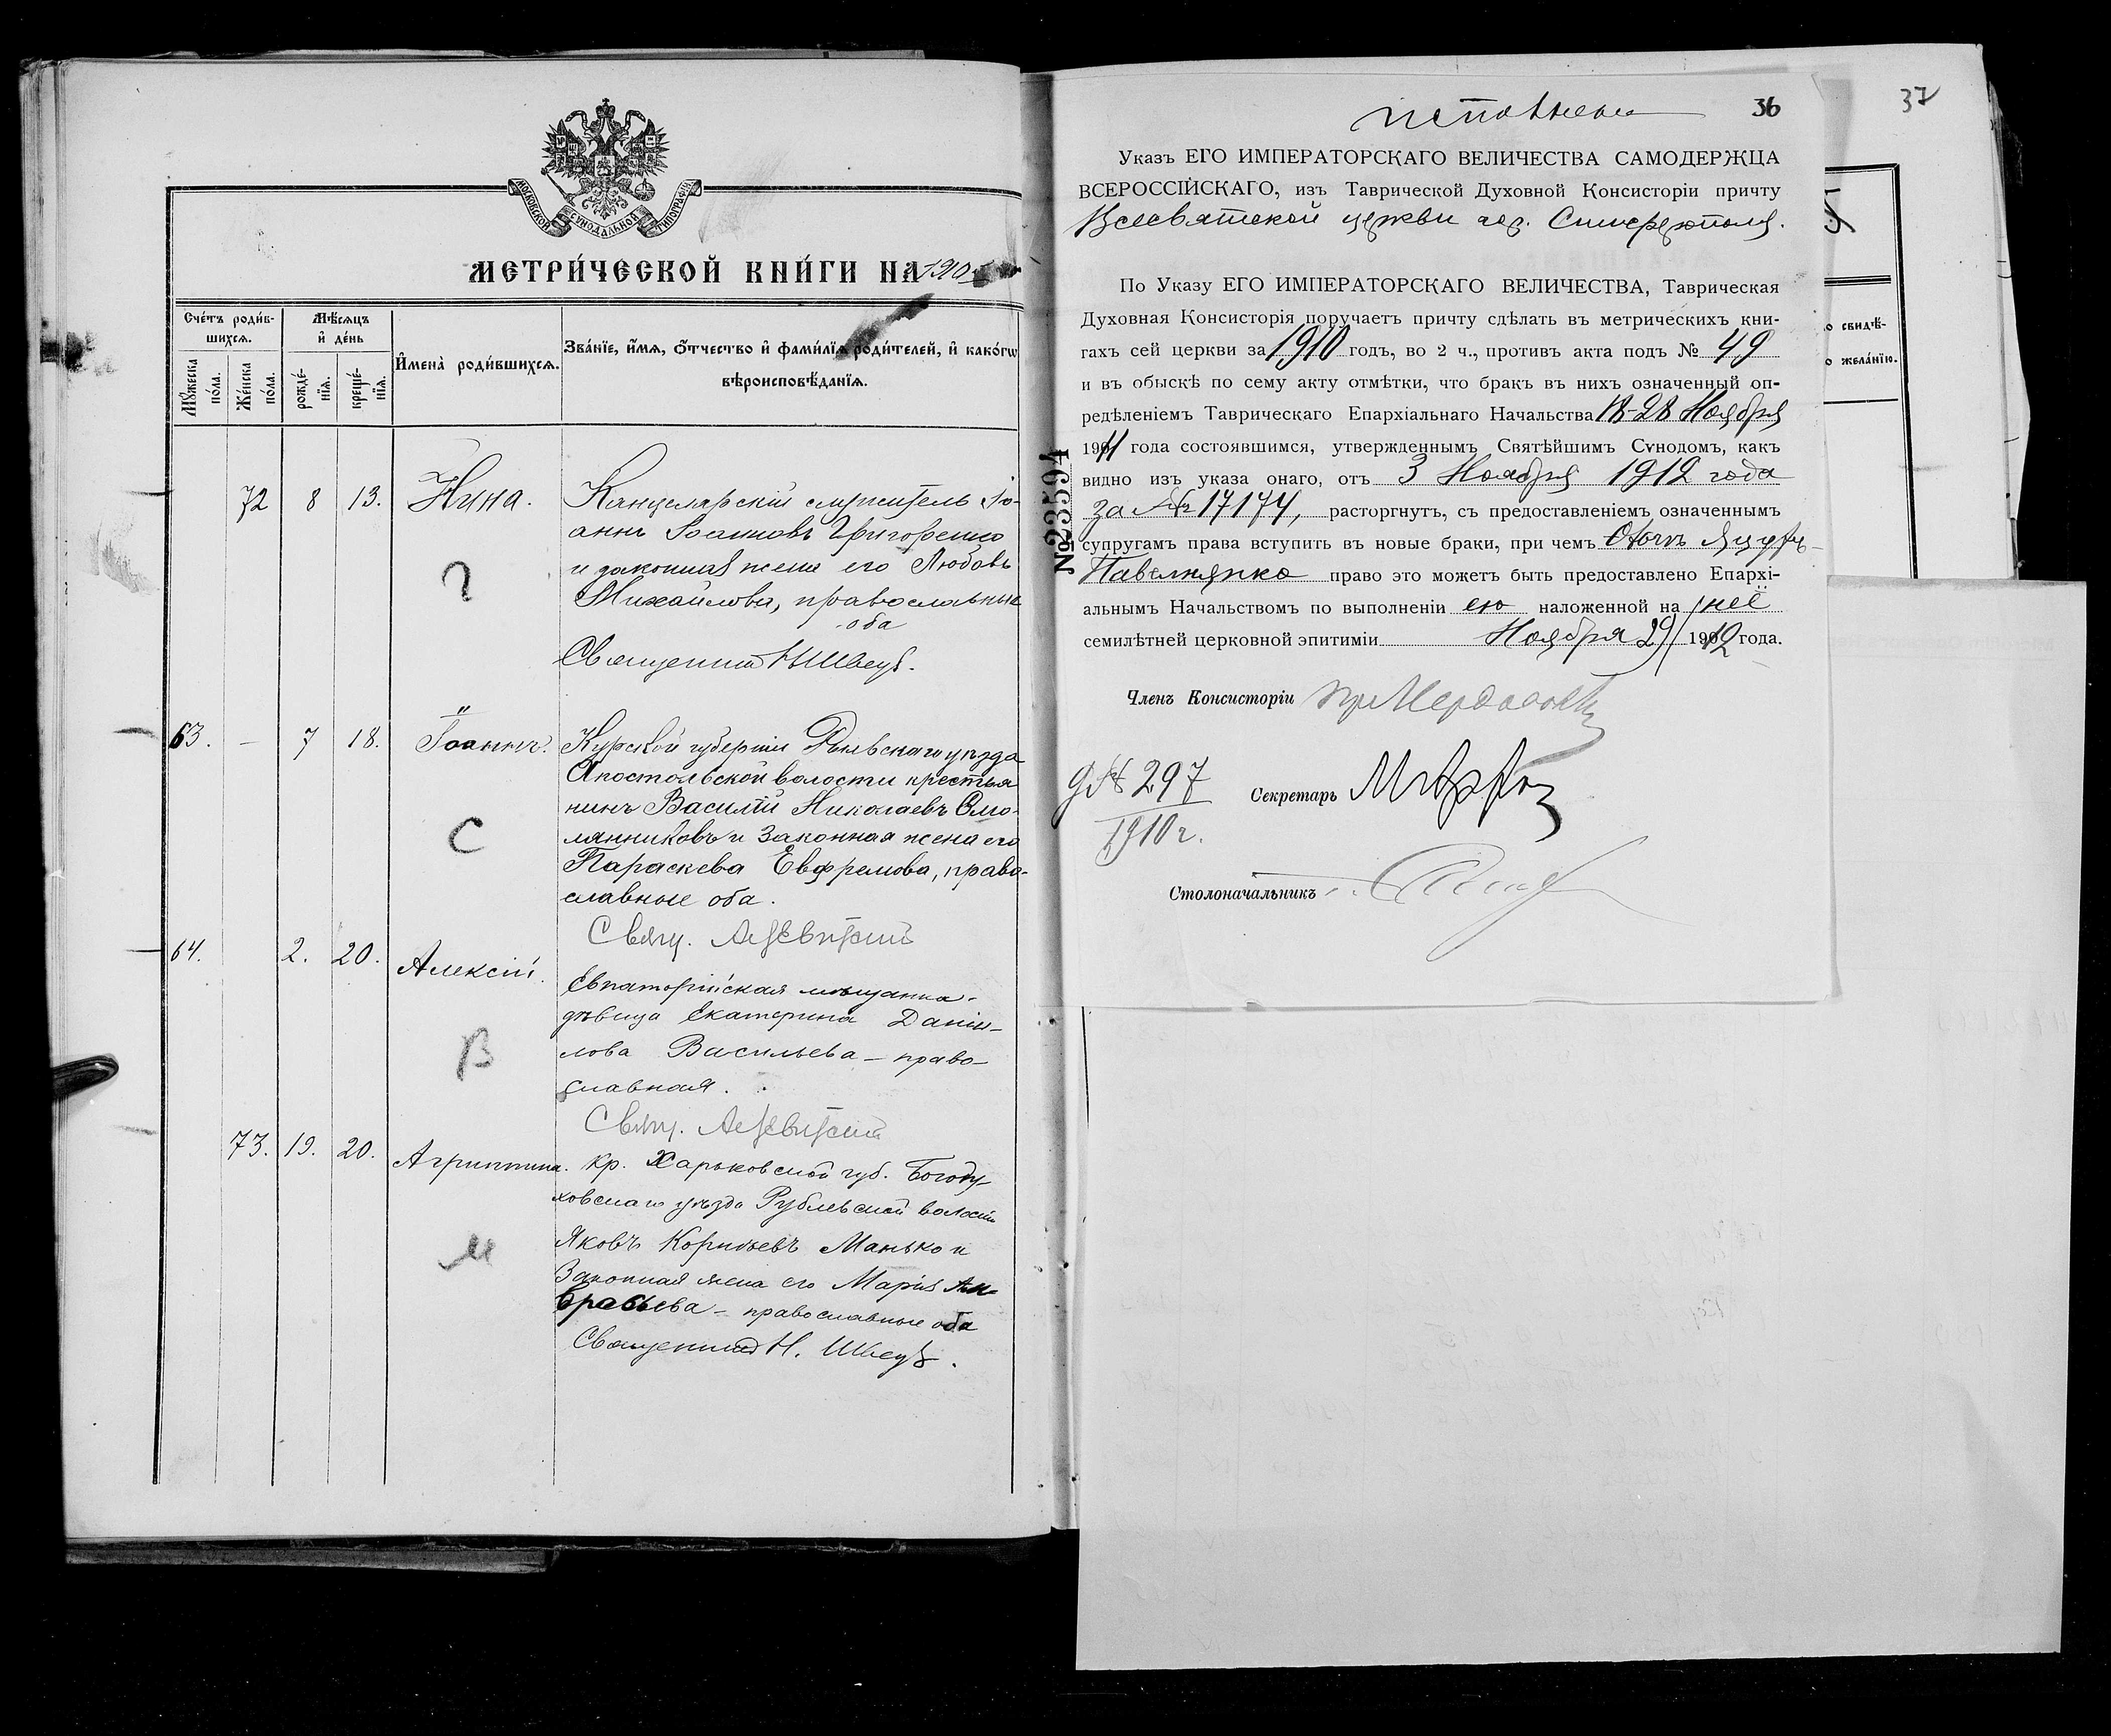 МОСКОВСКОЙ СѴНОДАЛЬНОЙ ТИПОГРАФІИ
МЕТРИ́ЧЕСКОЙ КНИ́ГИ НА 1910
Сче́тъ роди́в-
шихсѧ.
Мѣ́сѧцъ
и҆ де́нь
И҆мена̀ роди́вшихсѧ.
Зва́нїе, и҆́мѧ, ѻ҆́тчество и҆ фами́лїѧ роди́телей, и҆ како́гѡ
вѣроисповѣ́данїѧ.
Мꙋ́жеска
по́ла.
Же́нска
по́ла.
рожде́-
нїѧ.
креще́-
нїѧ.
72 8 13. Нина. Канцелярскій служитель Іо-
аннъ Іоанновъ Григоренко
и законная жена его Любовь
Михайлова, православные
оба
Священникъ Н Швецъ.
Г
63. – 7 18. Іоаннъ. Курской губерніи уѣзда
Апостольской волости крестья
нинъ Василій Николаевъ Смо-
лянниковъ и законная жена его
Параскева Евфремова, право-
славные оба.
С
Свящ.
64. 2. 20. Алексій. Евпаторійская мѣщанка-
дѣвица Екатерина Даніи-
лова Васильева – право-
славная.
В
Свящ.
73. 19. 20. Агриппина. кр. Харьковской губ. Богоду-
ховскаго уѣзда Рублевской волости
Яковъ Корнѣевъ Манько и
Законная жена его Марія
– православные оба
М
Священникъ Н. Швецъ.
исполнено 36
37
Указъ ЕГО ИМПЕРАТОРСКАГО ВЕЛИЧЕСТВА САМОДЕРЖЦА
ВСЕРОССІЙСКАГО, изъ Таврической Духовной Консисторіи причту
Всесвятской церкви гор. Симферополя.
По Указу ЕГО ИМПЕРАТОРСКАГО ВЕЛИЧЕСТВА, Таврическая
Духовная Консисторія поручаетъ причту сдѣлать въ метрическихъ кни-
гахъ сей церкви за 1910 годъ, во 2 ч., противъ акта подъ № 49
и въ обыскѣ по сему акту отмѣтки, что бракъ въ нихъ означенный оп-
редѣленіемъ Таврическаго Епархіальнаго Начальства 18-28 Ноября
1911 года состоявшимся, утвержденнымъ Святѣйшимъ Сѵнодомъ, какъ
видно изъ указа онаго, отъ 3 Ноября 1912 года
за № 17174, расторгнутъ, съ предоставленіемъ означеннымъ
супругамъ права вступить въ новые браки, при чемъ
право это можетъ быть предоставлено Епархі-
альнымъ Начальствомъ по выполненіи ею наложенной на неё
семилѣтней церковной эпитиміи Ноября 29 1912 года.
№ 23594
Членъ Консисторіи
д № 297
1910 г.
Секретарь
Столоначальникъ
о свидѣ-
о жела́нїю.